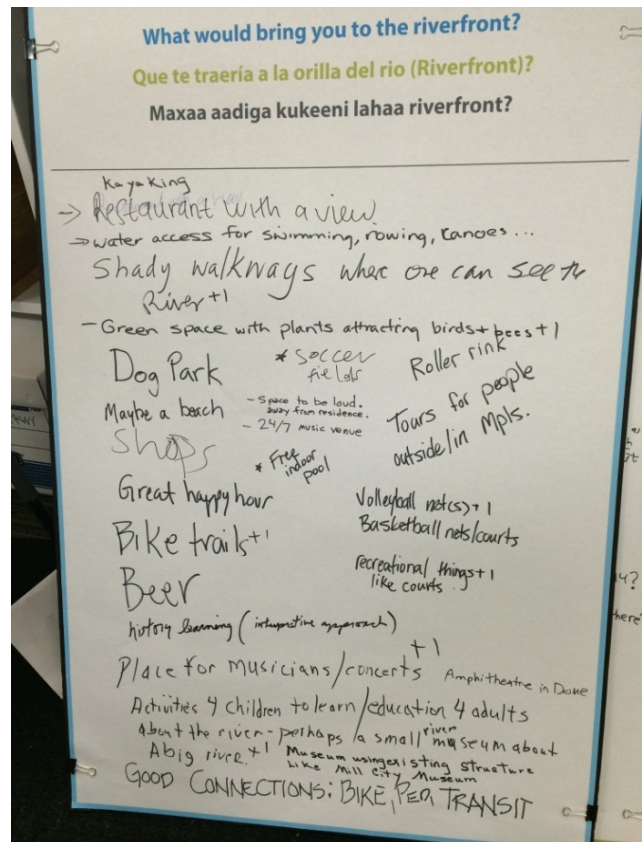 What would bring you to the riverfront?
Que te traería a la orilla del rio (Riverfront)?
Maxaa aadiga kukeeni lahaa riverfront?
Kayaking
→ Restaurant with a view.
→ water access for swimming, rowing, canoes...
Shady walkways where one can see the
River +1
- Green space with plants attracting birds + bees +1
Dog Park
* Soccer
fields
Roller rink
Maybe a beach
- Space to be loud.
away from residence.
- 24/7 music venue
Tours for people
outside/in Mpls.
Shops
* Free
indoor
pool
Great happy hour
Volleyball net(s) +1
Basketball nets/courts
Bike trails +1
recreational things +1
like courts.
Beer
history learning (interpretive approach)
Place for musicians/concerts +1
Amphitheatre in Dome
Activities 4 children to learn/education 4 adults
About the river - perhaps a small river museum about
A big river. +1
Museum using existing structure
Like Mill City Museum
GOOD CONNECTIONS: BIKE, PED, TRANSIT